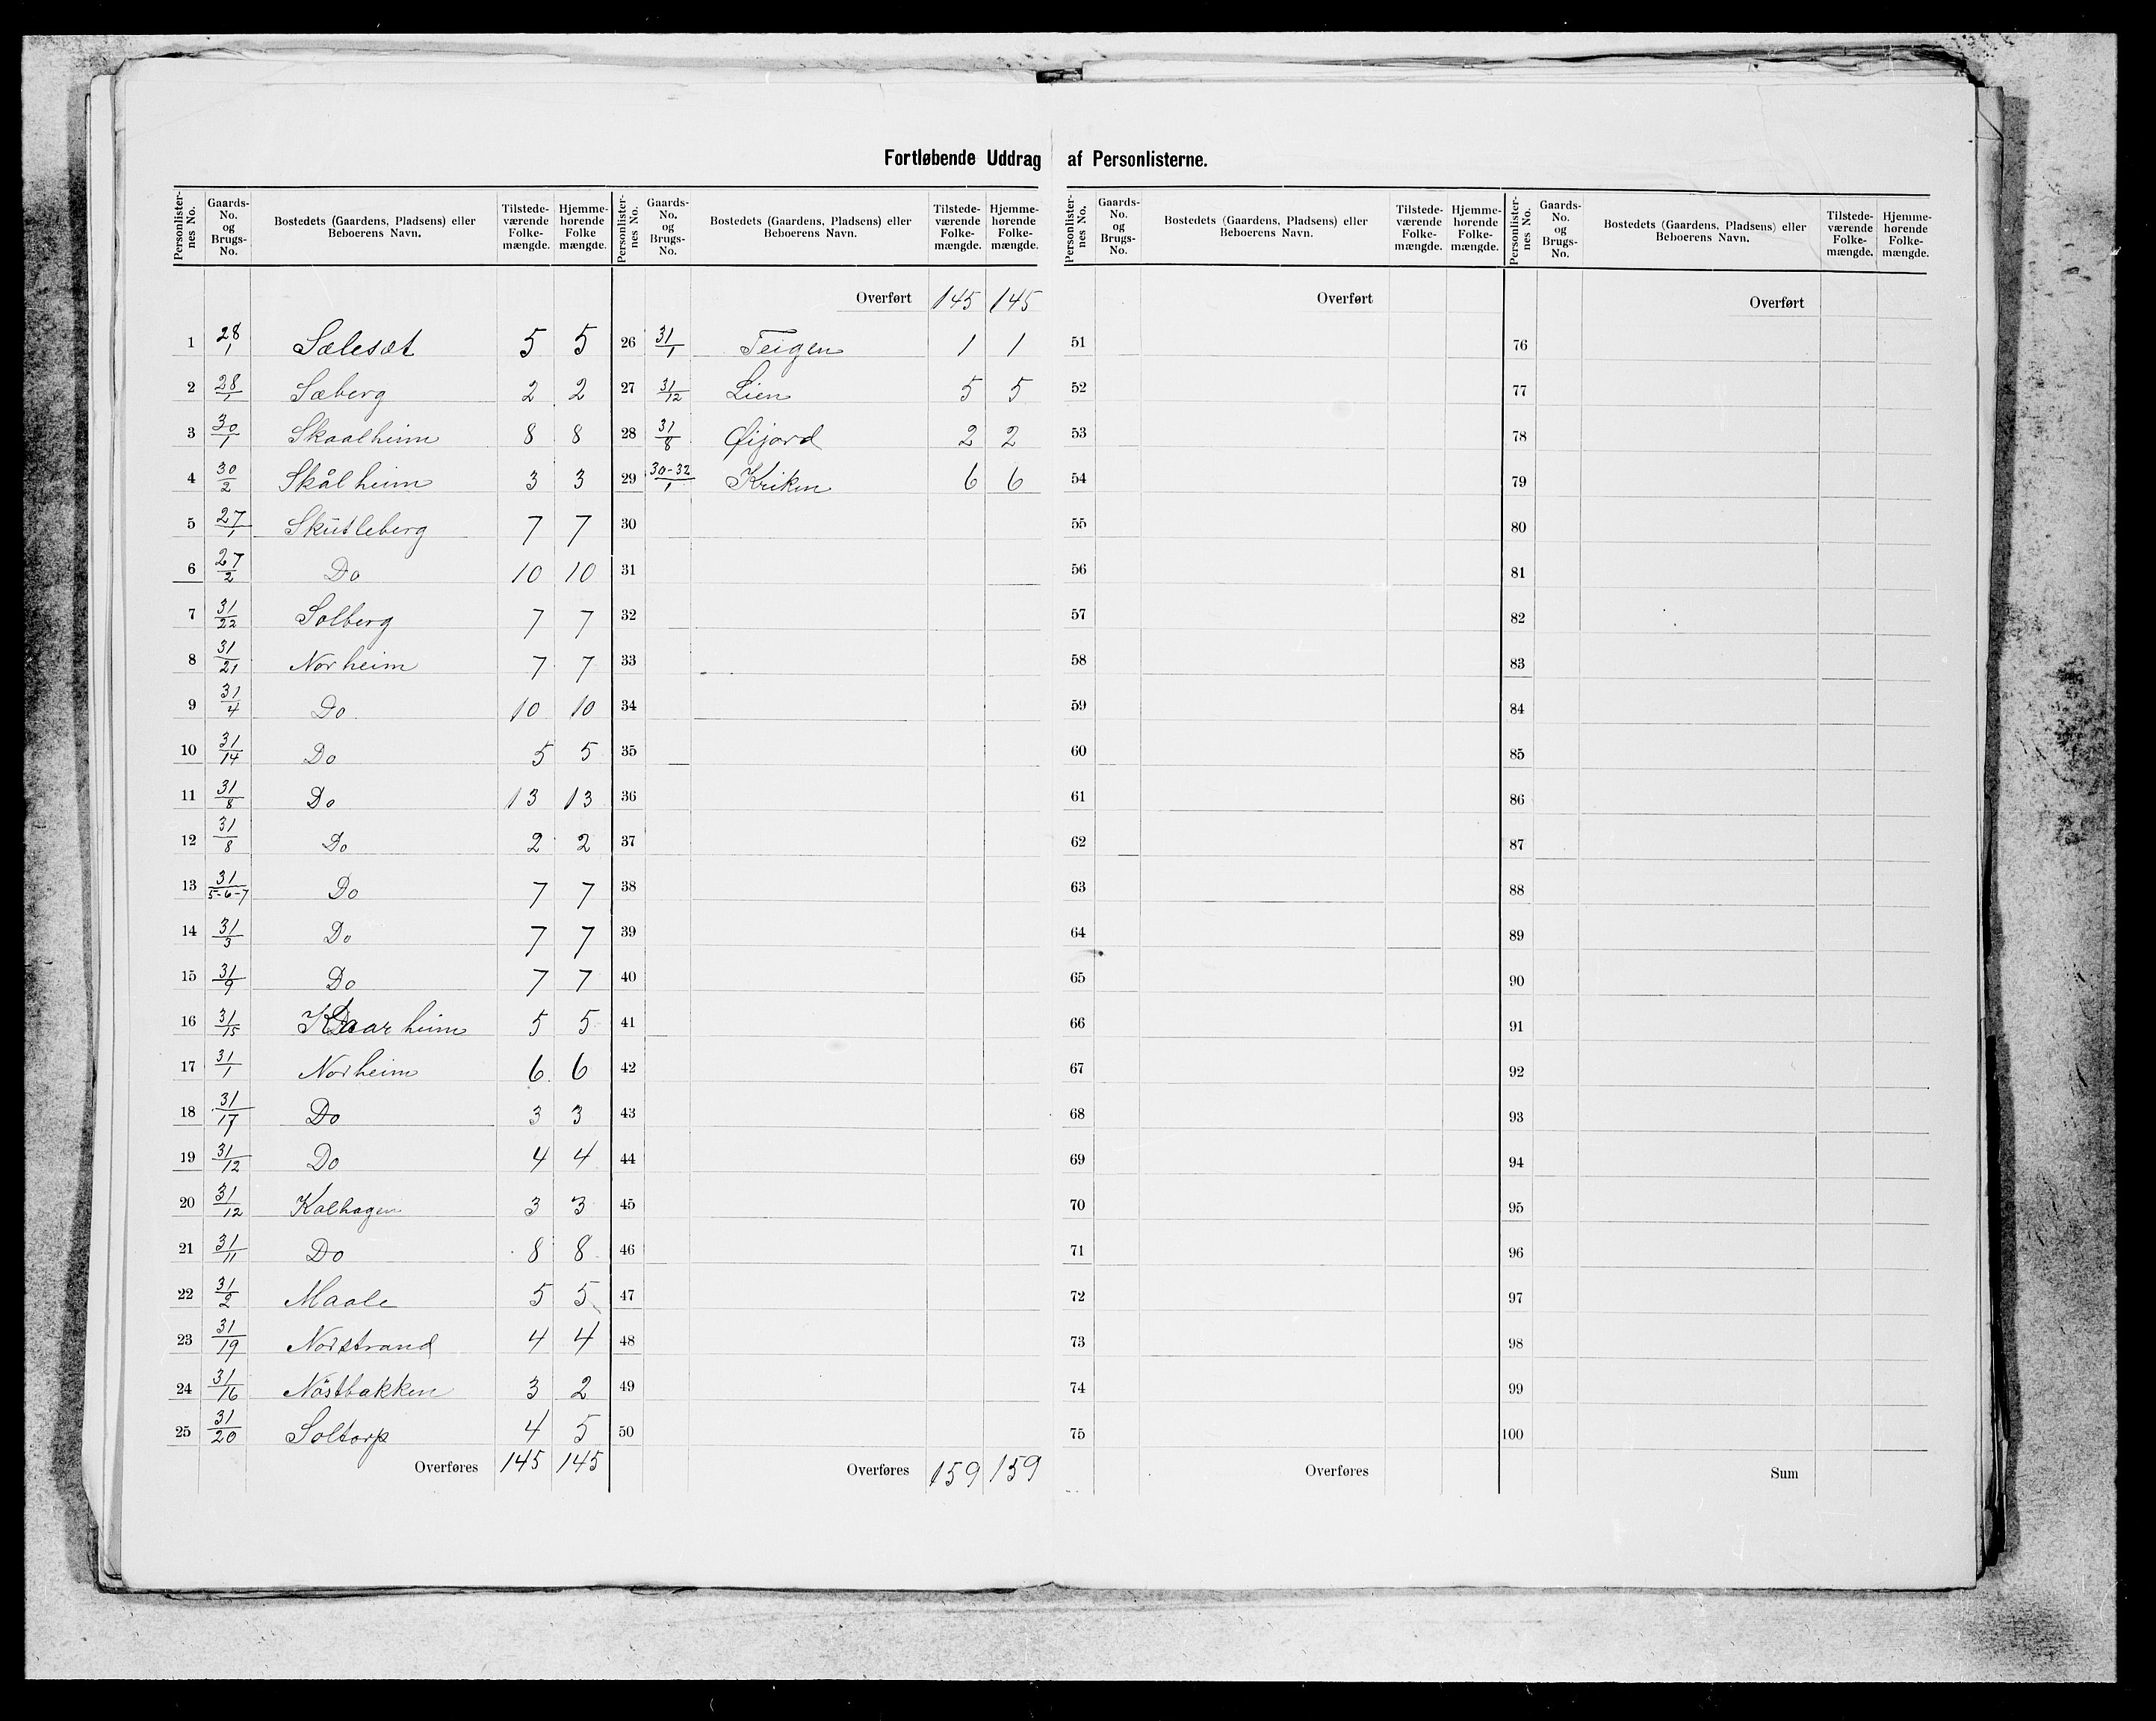 Fortløbende Uddrag af Personlisterne.
Personlister-nes No. | Gaards-No. og Brugs-No. | Bostedets (Gaardens, Pladsens) eller Beboerens Navn. | Tilstede-værende Folke-mængde. | Hjemme-hørende Folke mængde.
1 28/1 Sælesæt 5 5
2 28/1 Sæberg 2 2
3 30/1 Skaalheim 8 8
4 30/2 Skålheim 3 3
5 27/1 Skutleberg 7 7
6 27/2 Do 10 10
7 31/22 Solberg 7 7
8 31/21 Norheim 7 7
9 31/4 Do 10 10
10 31/14 Do 5 5
11 31/8 Do 13 13
12 31/8 Do 2 2
13 31/5-6-7 Do 7 7
14 31/3 Do 7 7
15 31/9 Do 7 7
16 31/15 5 5
17 31/1 Norheim 6 6
18 31/17 Do 3 3
19 31/12 Do 4 4
20 31/12 Kalhagen 3 3
21 31/11 Do 8 8
22 31/2 Maale 5 5
23 31/19 Norstrand 4 4
24 31/16 Nöstbakken 3 2
25 31/20 Soltorp 4 5
Overføres 145 145
Personlister-nes No. | Gaards-No. og Brugs-No. | Bostedets (Gaardens, Pladsens) eller Beboerens Navn. | Tilstede-værende Folke-mængde. | Hjemme-hørende Folke-mængde.
Overført 145 145
26 31/1 Teigen 1 1
27 31/12 Lien 5 5
28 31/8 Øijord 2 2
29 30-32/1 Kriken 6 6
30
31
32
33
34
35
36
37
38
39
40
41
42
43
44
45
46
47
48
49
50
Overføres 159 159
Personlister-nes No. | Gaards-No. og Brugs-No. | Bostedets (Gaardens, Pladsens) eller Beboerens Navn. | Tilstede-værende Folke-mængde. | Hjemme-hørende Folke-mængde.
Overført
51
52
53
54
55
56
57
58
59
60
61
62
63
64
65
66
67
68
69
70
71
72
73
74
75
Overføres
Personlister-nes No. | Gaards-No. og Brugs-No. | Bostedets (Gaardens, Pladsens) eller Beboerens Navn. | Tilstede-værende Folke-mængde. | Hjemme-hørende Folke-mængde.
Overført
76
77
78
79
80
81
82
83
84
85
86
87
88
89
90
91
92
93
94
95
96
97
98
99
100
Sum